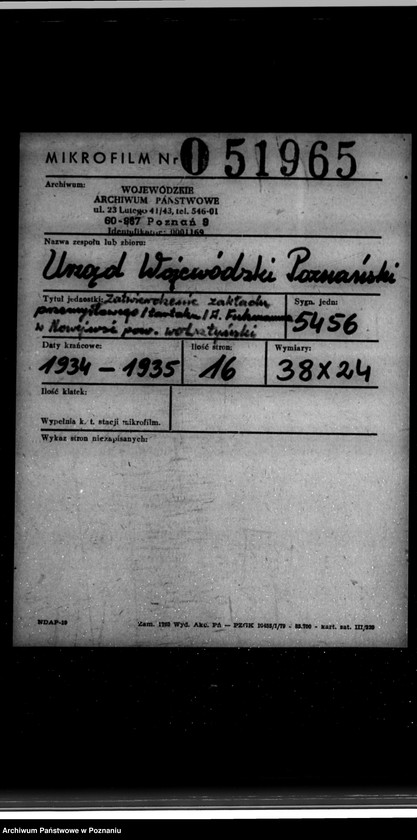 MIKROFILM Nr O 51965
Archiwum:
WOJEWÓDZKIE
ARCHIWUM PAŃSTWOWE
ul. 23 Lutego 41/43, tel. 546-01
60-967 Poznań 9
Identyfikator: 0001169
Nazwa zespołu lub zbioru:
Urząd Wojewódzki Poznański
Tytuł jednostki: Zatwierdzenie zakładu
przemysłowego /tartaku/ A. Fuhrmanna
w Nowejwsi pow. wolsztyński
Sygn. jedn:
5456
Daty krańcowe:
1934 - 1935
Ilość stron:
16
Wymiary:
38 x 24
Ilość klatek:
Wypełnia k. t. stacji mikrofilm.
Wykaz stron niezapisanych:
NDAP-19
Zam. Wyd. Akc. PA - PZGK kart. sat.
Archiwum Państwowe w Poznaniu